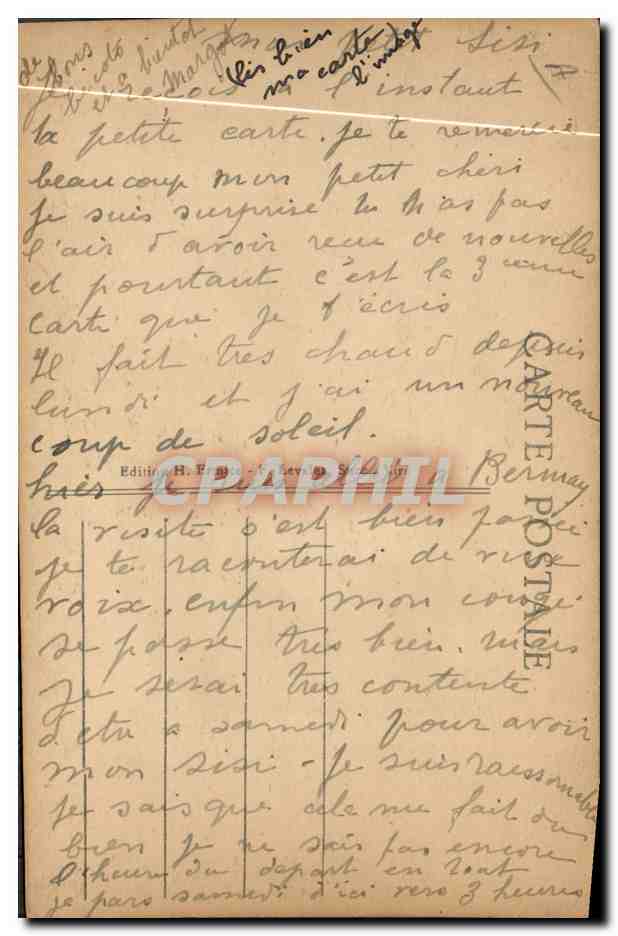 mon petit Sisi
Je recois à l'instant
ta petite carte. je te remercie
beaucoup mon petit chéri
Je suis surprise tu n'as pas
l'air d'avoir recu de nouvelles
et pourtant c'est la 3 eme
carte que je t'écris
Il fait très chaud depuis
lundi et j'ai un nouveau
coup de soleil.
hier je suis allé a Bernay
la visite s'est bien passé
je te raconterai de vive
voix. enfin mon congé
se passe très bien. mais
Je serai très contente
d'etre a samedi pour avoir
mon sisi - Je suis raisonnable
je sais que cela me fait du
bien je ne sais pas encore
l'heure du départ en tout
je pars samedi d'ici vers 3 heures
bons
et à bientot
Margot
(lis bien
ma carte
l'image
CARTE POSTALE
Edition H. Ermice -
CPAPHIL.COM